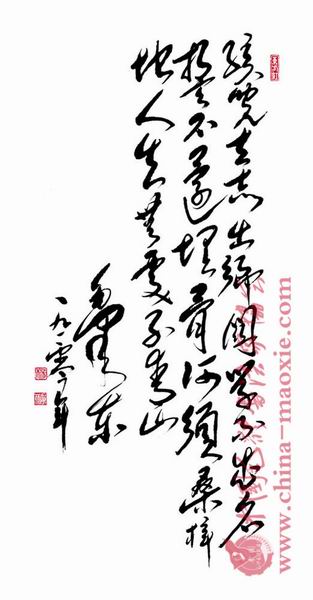 孩兒立志出鄉関学不成名
誓不還埋骨何須桑梓
地人生無處不青山
毛澤东
一九一零年
www.china-maoxie.com